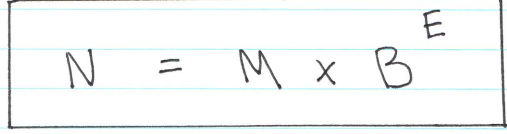 N = M x B^E